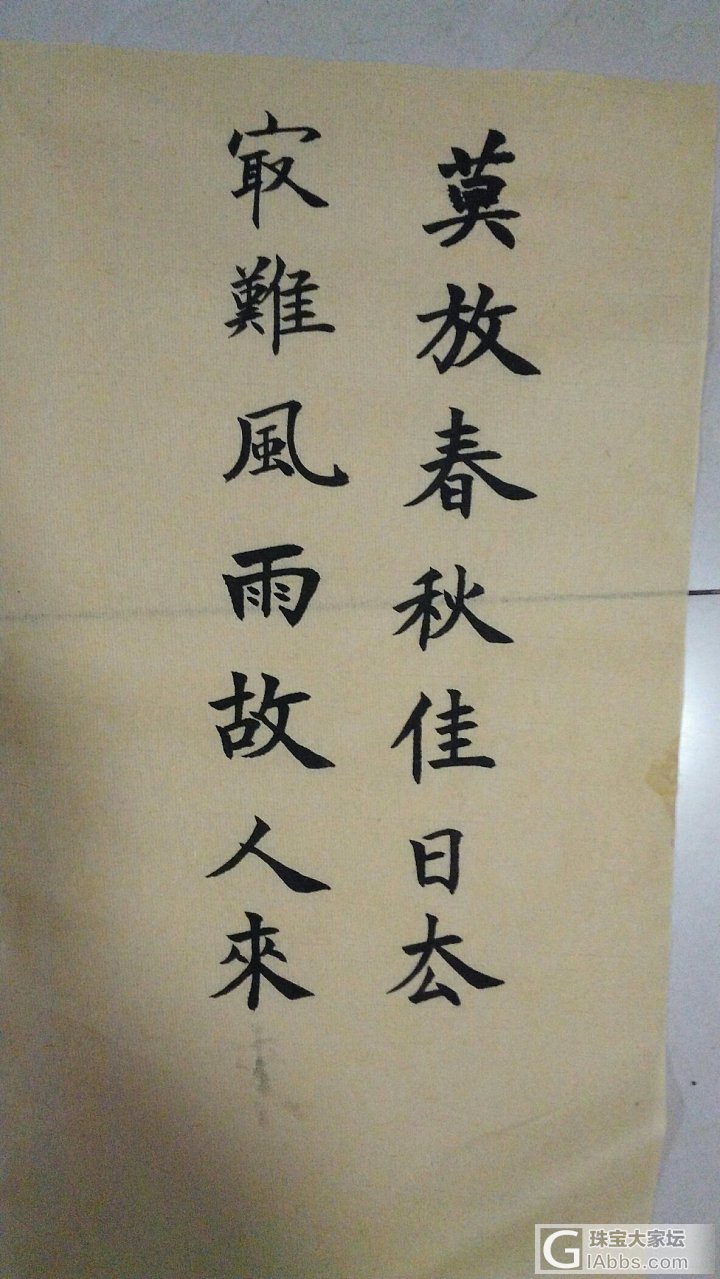 莫放春秋佳日厺
冣難風雨故人來
珠宝大家坛
GIAbbs.com